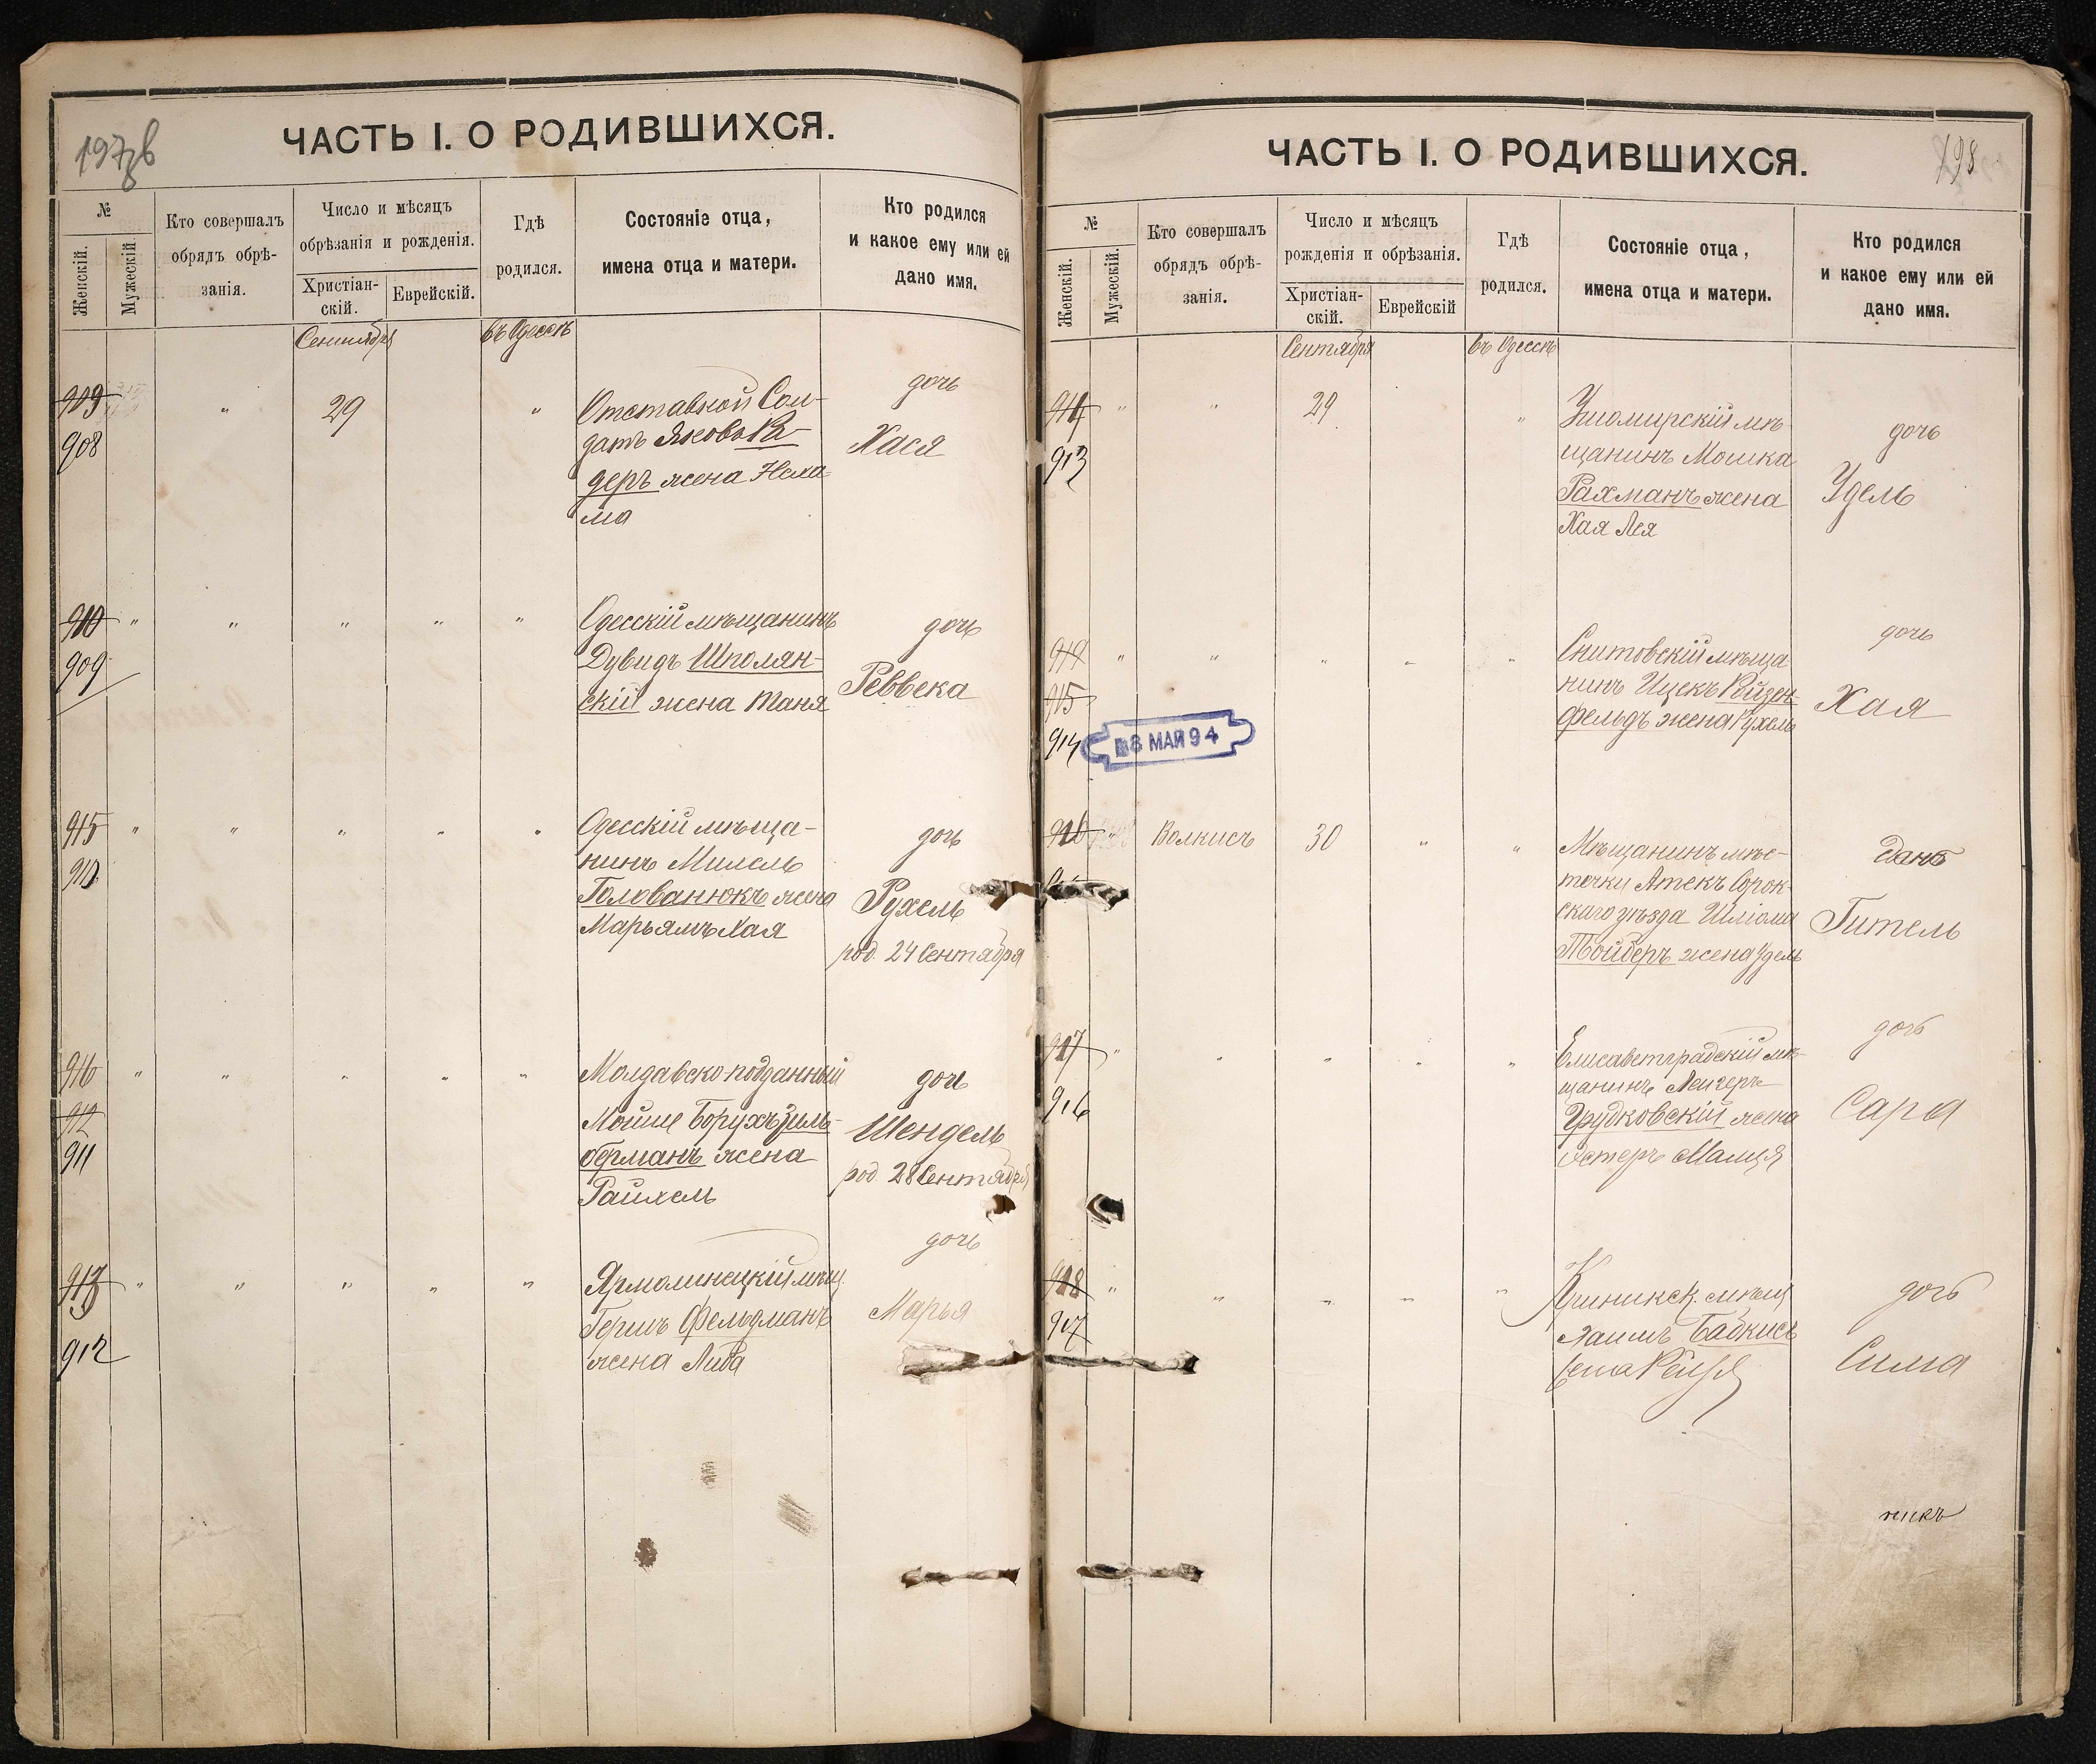 197
ЧАСТЬ I. О РОДИВШИХСЯ.
№
Женскій.
Мужескій.
Кто совершалъ
обрядъ обрѣ-
занія.
Число и мѣсяцъ
обрѣзанія и рожденія.
Христіан-
скій.
Еврейскій.
Гдѣ
родился.
Состояніе отца,
имена отца и матери.
Кто родился
и какое ему или ей
дано имя.
Сентября
въ Одессѣ
909
908
"
29
"
Отставной Сол-
датъ Яковъ Ка-
деръ жена Неха-
ма
дочь
Хася
910
909
" " " " "
Одесскій мѣщанинъ
Дувидъ Шполян-
скій жена Таня
дочь
Реввека
915
910
" " " " "
Одесскій мѣща-
нинъ
Голованюкъ жена
Марьямъ Хая
дочь
Рухель
род. 24 Сентября
916
912
911
" " " " "
Молдавско подданный
Мойше Борухъ Зиль-
берманъ жена
дочь
Шендель
род. 28 Сентября
913
912
" " " " "
Ярмолинецкій мѣщ.
Гершъ Фельдманъ
жена Либа
дочь
Марья
198
ЧАСТЬ I. О РОДИВШИХСЯ.
№
Женскій.
Мужескій.
Кто совершалъ
обрядъ обрѣ-
занія.
Число и мѣсяцъ
рожденія и обрѣзанія.
Христіан-
скій.
Еврейскій
Гдѣ
родился.
Состояніе отца,
имена отца и матери.
Кто родился
и какое ему или ей
дано имя.
Сентября
въ Одессѣ
914
913
" "
29
"
мѣ-
щанинъ Мошка
Рахманъ жена
Хая Лея
дочь
Удель
915
914
8 МАЯ 94
" " " " "
Снитовскій мѣща-
нинъ Ицекъ Ройзен-
фельдъ жена Рухель
дочь
Хая
916
"
30
" "
Мѣщанинъ мѣс-
точки Атекъ Сорок-
скаго уѣзда Шліома
Тойберъ жена Удель
Гитель
917
916
" " " " "
Елисаветградскій мѣ-
щанинъ Лейзеръ
Грудковскій жена
Эстеръ Малця
дочь
Сара
918
917
" " " " "
мѣщ
Хаимъ Бабкисъ
дочь
Сима